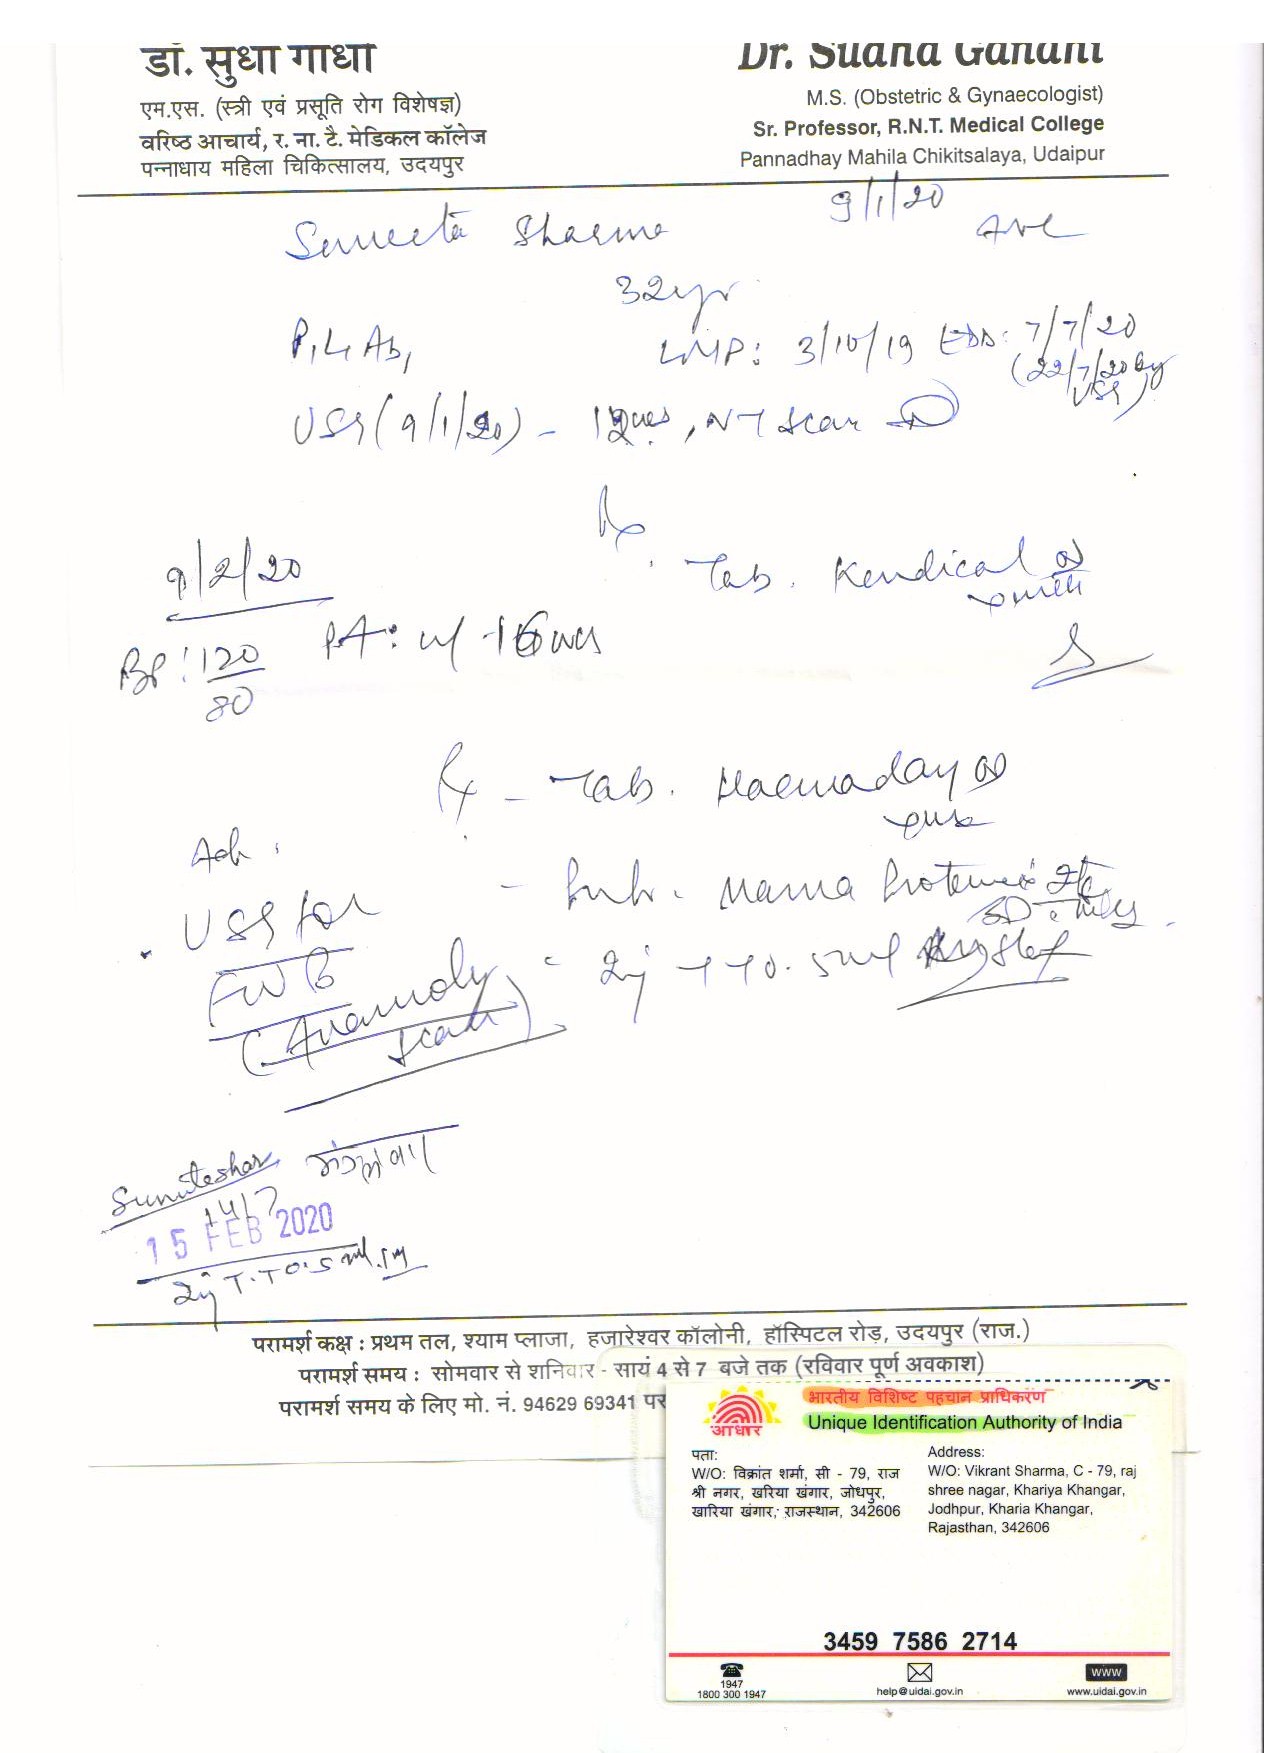 डॉ. सुधा गांधी
एम.एस. (स्त्री एवं प्रसूति रोग विशेषज्ञ)
वरिष्ठ आचार्य, र. ना. टै. मेडिकल कॉलेज
पन्नाधाय महिला चिकित्सालय, उदयपुर
Dr. Sudha Gandhi
M.S. (Obstetric & Gynaecologist)
Sr. Professor, R.N.T. Medical College
Pannadhay Mahila Chikitsalaya, Udaipur
9/1/20
Suneeta Sharma
32yr
P1L1Ab1
LMP: 3/10/19 EDD: 7/7/20
(22/7/20 by USG)
USG (9/1/20) - 12wks, NT scan
Rx
Tab. Kendical OD
9/2/20
BP: 120/80
PA: ut 16wks
Rx - Tab. Haemaday OD
Adv:
USG for
FWB
(Anamoly
scan)
Mama Protein
- Inj TT 0.5ml
15 FEB 2020
Inj T.T 0.5ml IM
परामर्श कक्ष : प्रथम तल, श्याम प्लाजा, हजारेश्वर कॉलोनी, हॉस्पिटल रोड़, उदयपुर (राज.)
परामर्श समय : सोमवार से शनिवार - सायं 4 से 7 बजे तक (रविवार पूर्ण अवकाश)
परामर्श समय के लिए मो. नं. 94629 69341 पर
आधार
भारतीय विशिष्ट पहचान प्राधिकरण
Unique Identification Authority of India
पता:
W/O: विक्रांत शर्मा, सी - 79, राज
श्री नगर, खरिया खंगार, जोधपुर,
खारिया खंगार, राजस्थान, 342606
Address:
W/O: Vikrant Sharma, C - 79, raj
shree nagar, Khariya Khangar,
Jodhpur, Kharia Khangar,
Rajasthan, 342606
3459 7586 2714
1947
1800 300 1947
help@uidai.gov.in
www
www.uidai.gov.in